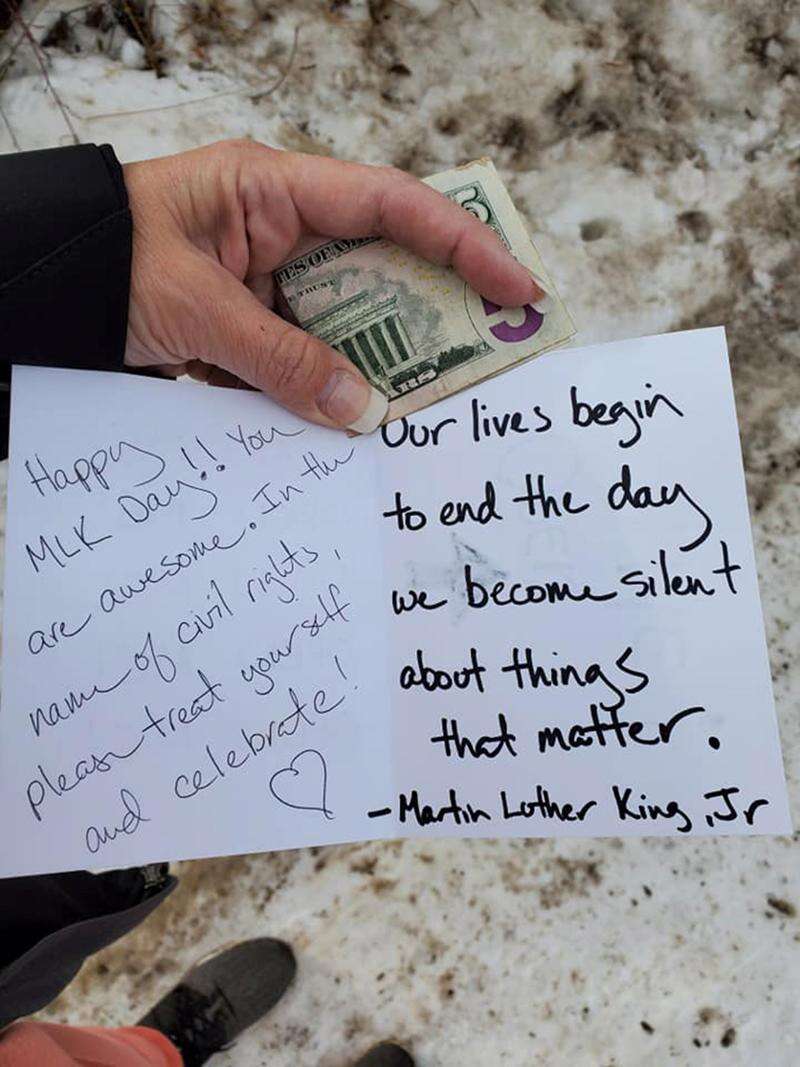 5
ES OF AM
TRUST
5
Happy
MLK Day!! You
are awesome. In the
name of civil rights,
please treat yourself
and celebrate!
Our lives begin
to end the day
we become silent
about things
that matter.
-Martin Luther King, Jr